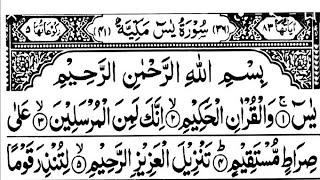 اٰیاتها ٨٣ (٣٦) سُوْرَةُ يٰسٓ مَكِّيَّةٌ (٤١) رُكُوْعَاتُهَا ٥
بِسْمِ اللّٰهِ الرَّحْمٰنِ الرَّحِيْمِ
يٰسٓ ۚ ١ وَالْقُرْاٰنِ الْحَكِيْمِ ۙ ٢ اِنَّكَ لَمِنَ الْمُرْسَلِيْنَ ۙ ٣ عَلٰى
صِرَاطٍ مُّسْتَقِيْمٍ ؕ ٤ تَنْزِيْلَ الْعَزِيْزِ الرَّحِيْمِ ۙ ٥ لِتُنْذِرَ قَوْمًا